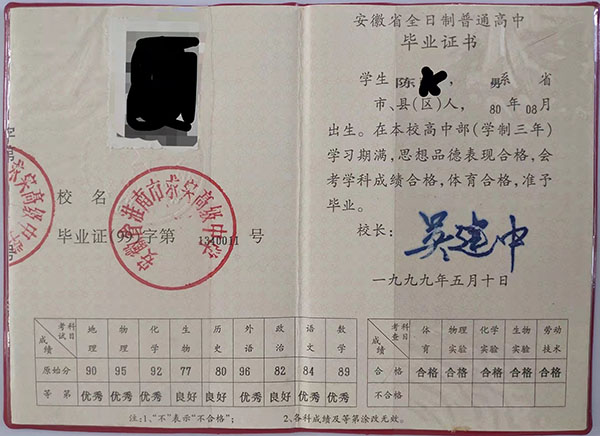 校 名
安徽省淮南市 高级中学
毕业证(99)字第1310011号
考试科目 地理 物理 化学 生物 历史 外语 政治 语文 数学
成绩
原始分 90 95 92 77 80 96 82 84 89
等 第 优秀 优秀 优秀 良好 良好 优秀 良好 优秀 优秀
注:1、“不”表示“不合格”;
安徽省全日制普通高中
毕业证书
学生 陈 , 男 系 省
市、县(区)人, 80年08月
出生。在本校高中部(学制三年)
学习期满,思想品德表现合格,会
考学科成绩合格,体育合格,准予
毕业。
校长: 吴建中
一九九九年五月十日
考查科目 体育 物理实验 化学实验 生物实验 劳动技术
成绩
合 格 合格 合格 合格 合格 合格
不合格
2、各科成绩及等第涂改无效。